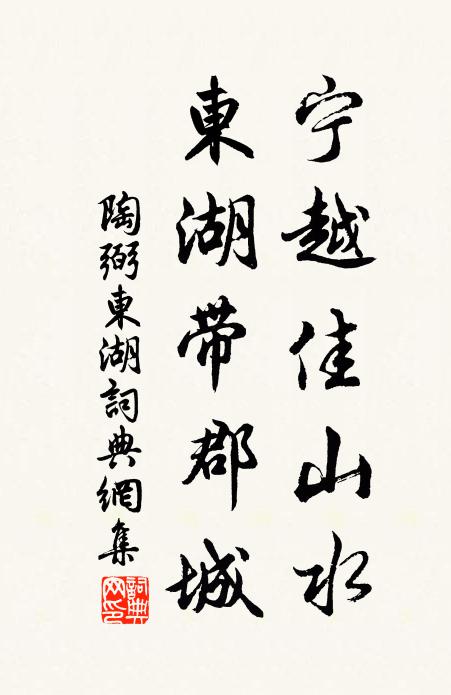 宁越佳山水
東湖带郡城
陶弼東湖詞典網集
詞典网印